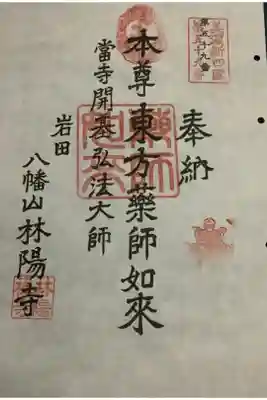 第五十九番
奉納
本尊東方藥師如來
當寺開基弘法大師
岩田
八幡山林陽寺